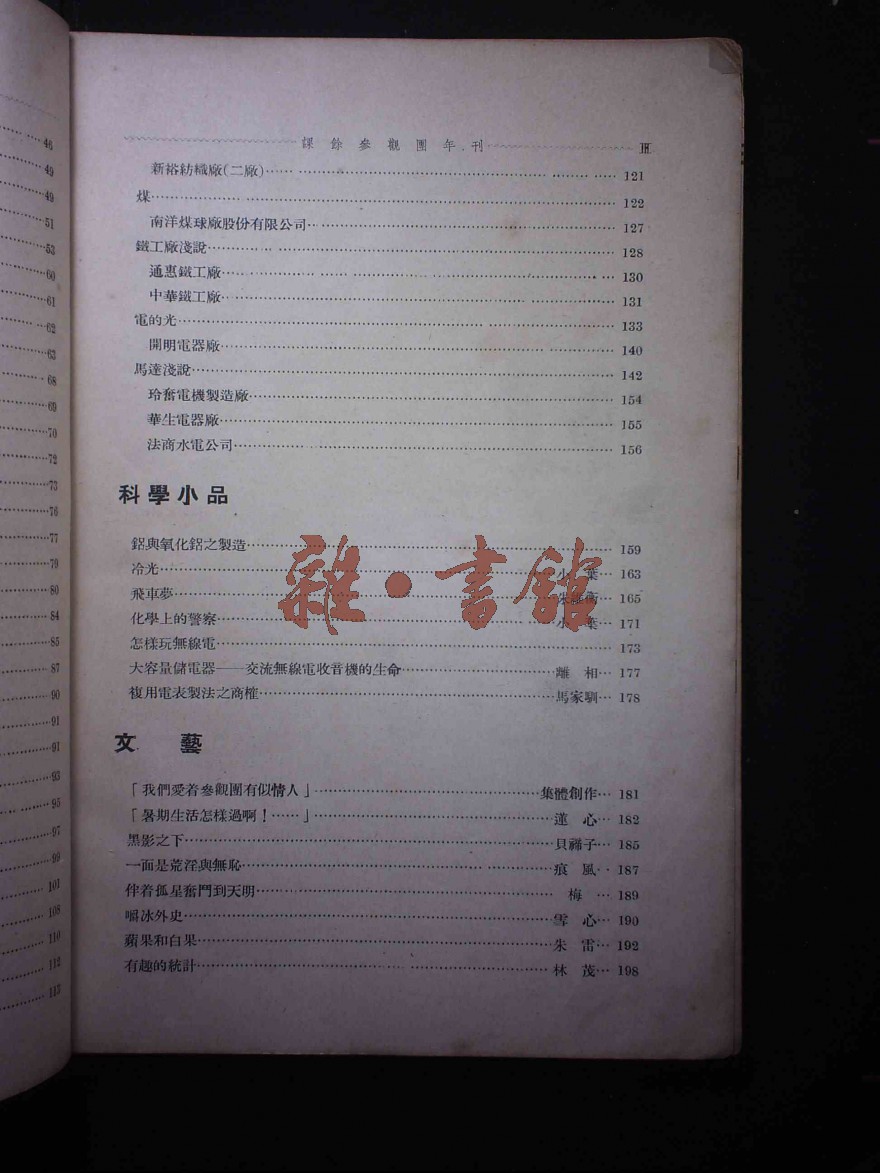 46
49
49
51
53
60
61
62
63
68
69
70
72
73
76
77
79
80
84
85
87
90
91
91
93
95
97
99
101
108
110
112
113
課餘參觀團年刊 III
新裕紡織廠(二廠)…… 121
煤…… 122
南洋煤球廠股份有限公司…… 127
鐵工廠淺說…… 128
通惠鐵工廠…… 130
中華鐵工廠…… 131
電的光…… 133
開明電器廠…… 140
馬達淺說…… 142
玲奮電機製造廠…… 154
華生電器廠…… 155
法商水電公司…… 156
科學小品
鋁與氧化鋁之製造…… 159
冷光……小葉… 163
飛車夢……朱 163
化學上的警察……小葉… 171
怎樣玩無線電…… 173
大容量儲電器——交流無線電收音機的生命……離相… 177
複用電表製法之商榷……馬家馴… 178
文藝
「我們愛着參觀團有似情人」……集體創作… 181
「暑期生活怎樣過啊！……」……蓮心… 182
黑影之下……貝子… 185
一面是荒淫與無恥……痕風… 187
伴着孤星奮鬥到天明……梅… 189
嚼冰外史……雪心… 190
蘋果和白果……朱雷… 192
有趣的統計……林茂… 198
雜·書館